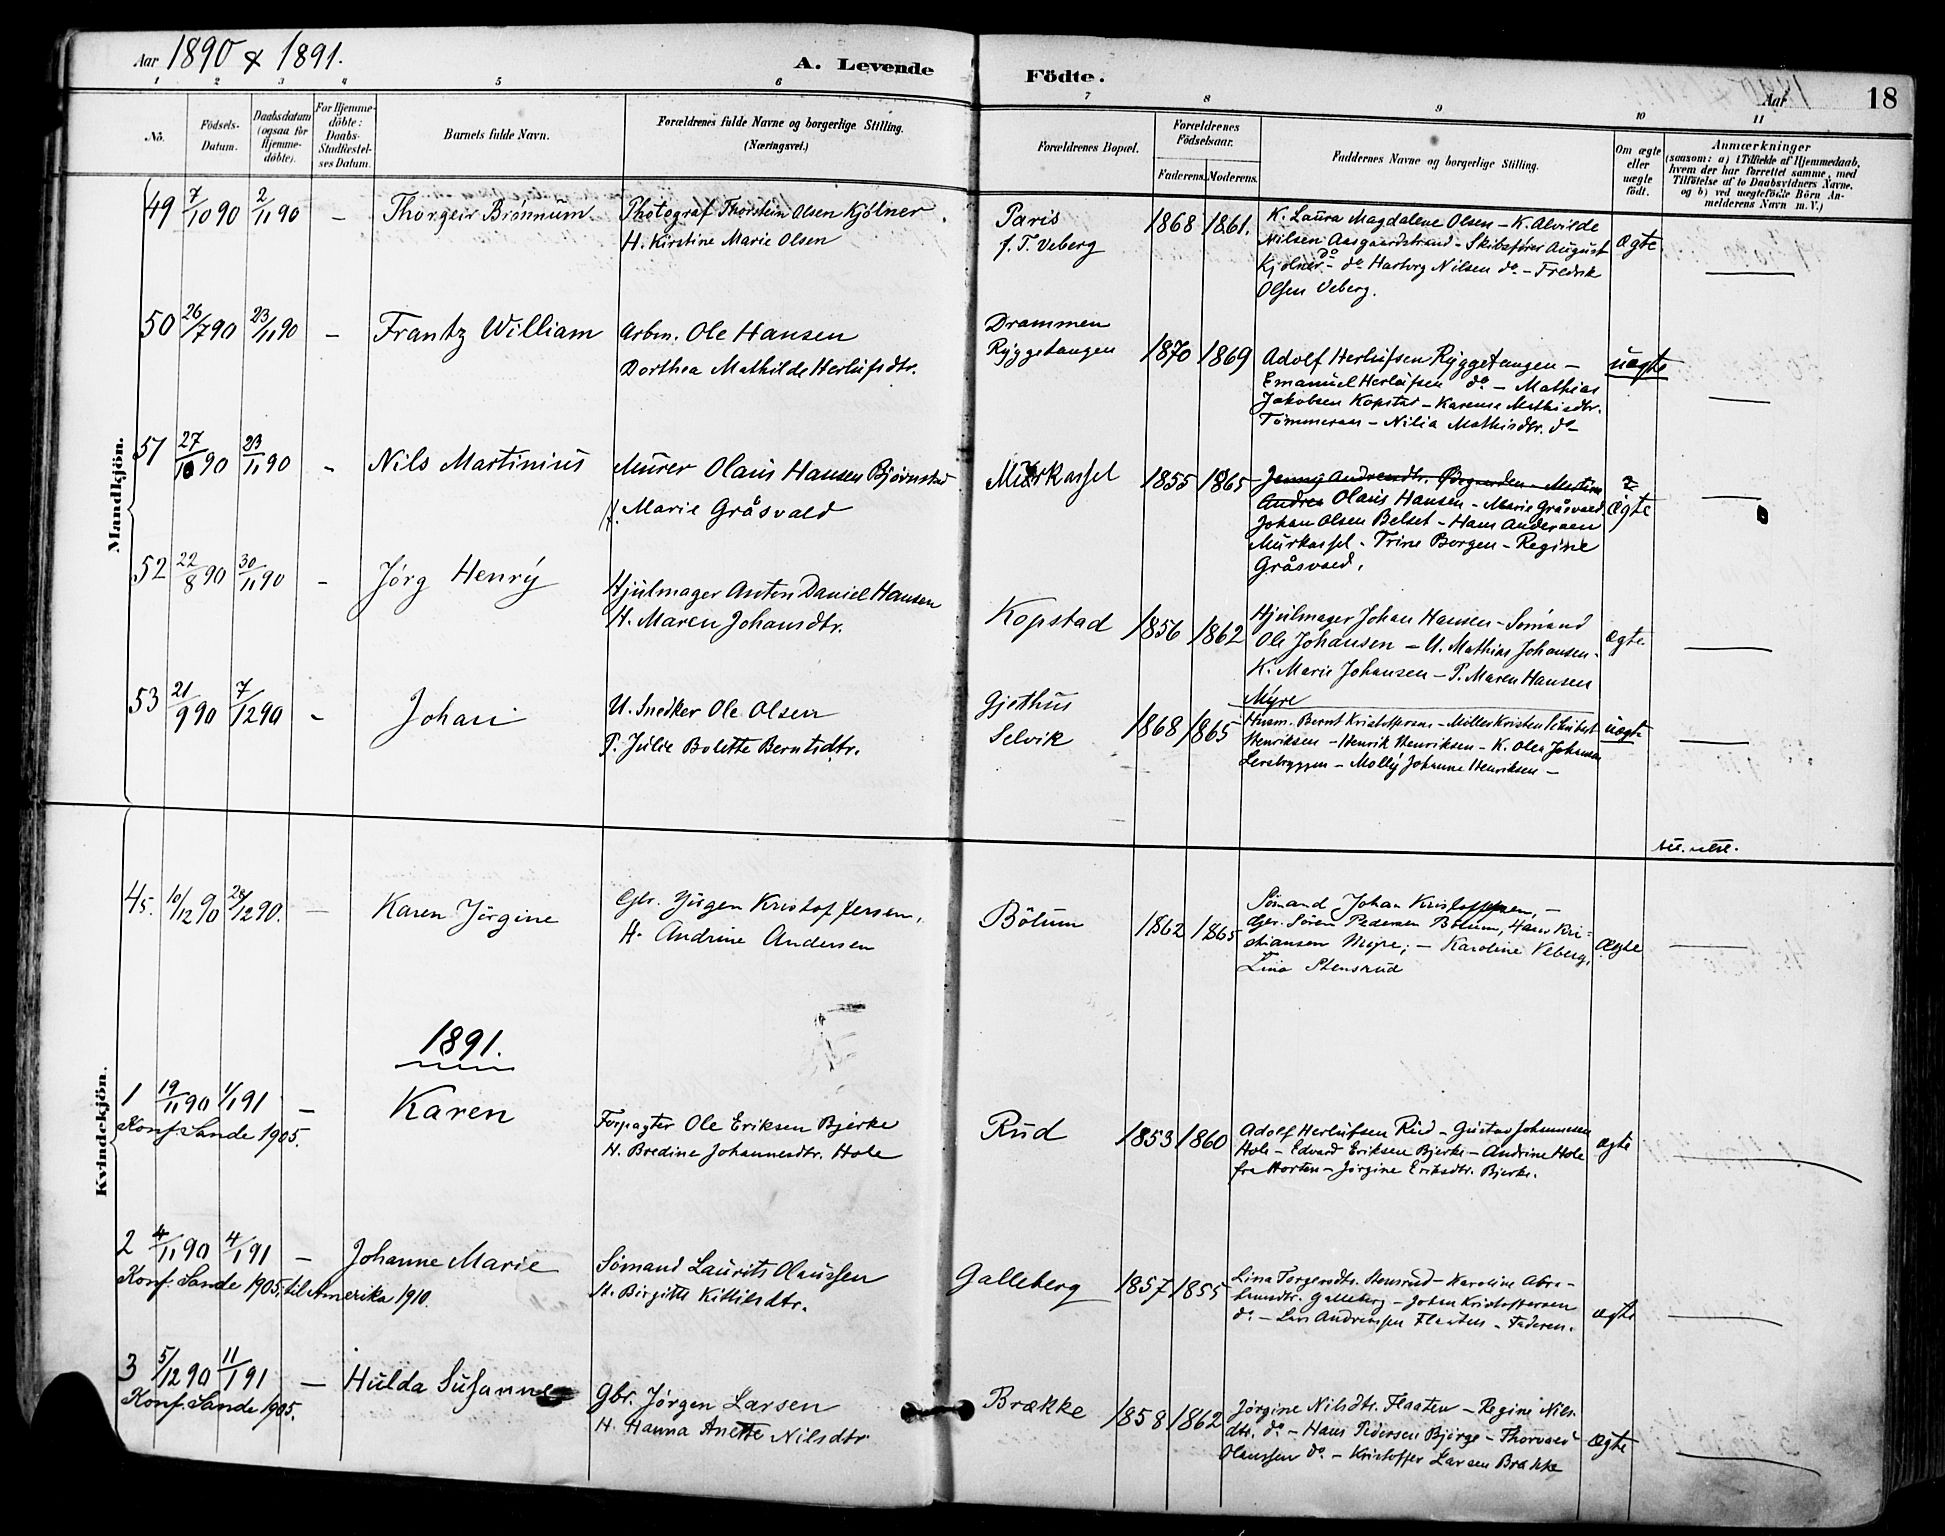 Aar 1890 & 1891.
A. Levende Födte.
Aar 18
1 2 3 4 5 6 7 8 9 10 11
No.
Födsels-
Datum.
Daabsdatum
(ogsaa for
Hjemme-
döbte).
For Hjemme-
döbte:
Daabs-
Stadfæstel-
ses Datum.
Barnets fulde Navn.
Forældrenes fulde Navne og borgerlige Stilling.
(Næringsvei.)
Forældrenes Bopæl.
Forældrenes
Födselsaar.
Faderens. Moderens.
Faddernes Navne og borgerlige Stilling.
Om ægte
eller
uægte
födt.
Anmærkninger
(saasom: a) i Tilfælde af Hjemmedaab,
hvem der har forrettet samme, med
Tilföielse af to Daabsvidners Navne,
og b) ved uegtefödte Börn An-
melderens Navn m. V.)
Mandkjön.
49 7/10 90 2/11 90 – Thorgeir Brönnum. Photograf Thorstein Olsen Kjölner.
H. Kirstine Marie Olsen
Paris
f. T. Veberg
1868 1861.
K. Laura Magdalene Olsen – K. Alvilde
Nilsen Aasgaardstrand – Skibsfører August
Kjölner do – do Hartvig Nilsen do – Fredrik
Olsen Veberg.
ægte
50 26/7 90 23/11 90 – Frantz William Arbm. Ole Hansen
Dorthea Mathilde Herlufsdtr.
Drammen
Ryggetangen
1870 1869
Adolf Herlufsen Ryggetangen –
Emanuel Herlufsen do – Mathias
Jakobsen Kopstad – Karense Mathisdtr.
Tömmeraas – Nilia Mathisdtr. do –
uægte
51 27/10 90 23/11 90 – Nils Martinius Murer Olaus Hansen Bjørnstad
H. Marie Gråsvold
Murkassel
1855 1865
Jenny Andreasdtr.
Andrea Olaus Hansen – Marie Gråsvold.
Johan Olsen Belset – Hans Andersen
Murkassel – Trine Borgen – Regine
Gråsvold.
ægte
52 22/8 90 30/11 90 – Jörg Henry Hjulmager Anton Daniel Hansen
H. Maren Johansdtr.
Kopstad 1856 1862
Hjulmager Johan Hansen – Sömand
Ole Johansen – U. Mathias Johansen –
K. Marie Johansen – P. Maren Hansen
Myre
ægte
53 21/9 90 7/12 90 – Johan U. Snedker Ole Olsen
P. Julie Bolette Berntsdtr.
Gjethus
Selvik
1868 1865
Husm. Bernt Kristoffersen – Möller Kristen Schubert
Henriksen – Henrik Henriksen – K. Olea Johansen
Lersbryggen – Molly Johanne Henriksen –
uægte
Kvindekjön.
45. 10/12 90 28/12 90. – Karen Jörgine Gbr. Jörgen Kristoffersen,
H. Andrine Andersen
Bötum 1862 1865
Sömand Johan Kristoffersen, –
Gbr. Sören Pedersen Bötum, Hans Kri-
stiansen Myre; – Karoline Veberg,
Lina Stensrud
Ægte
1891.
1 19/11 90 1/1 91 – Karen
Konf. Sande 1905.
Forpagter Ole Eriksen Bjerke
H. Bredine Johannesdtr. Hole
Rud 1853 1860
Adolf Herlufsen Rud – Gustav Johannesen
Hole – Edvard Eriksen Bjerke – Andrine Hole
fra Horten – Jörgine Eriksdtr. Bjerke.
ægte
2 4/11 90 4/1 91 – Johanne Marie
Konf. Sande 1905. til Amerika 1910.
Sömand Laurits Olaussen
H. Birgitte Kittilsdtr.
Galleberg 1857 1855
Lina Torgersdtr. Stensrud – Karoline Abra-
hamsdtr. Galleberg – Johan Kristoffersen
do – Lars Andreassen Flaaten – Faderen.
ægte
3 5/12 90 11/1 91 – Hulda Susanne
Konf. Sande 1905.
Gbr. Jørgen Larsen
H. Hanna Anette Nilsdtr
Brække 1858 1862
Jörgine Nilsdtr. Flaaten – Regine Nils-
dtr. do – Hans Pedersen Bjerge – Thorvald
Olaussen do – Kristoffer Larsen Brække
ægte